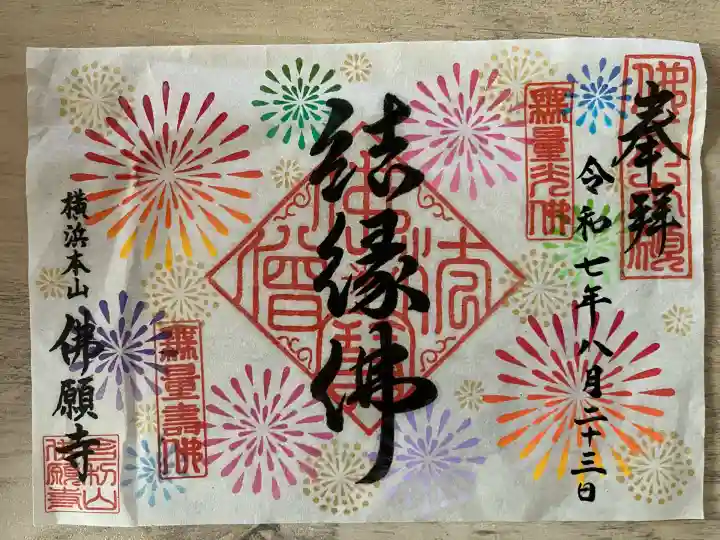 奉拜
令和七年八月二十三日
無量光佛
結縁佛
佛法僧寶
無量壽佛
横浜本山
佛願寺